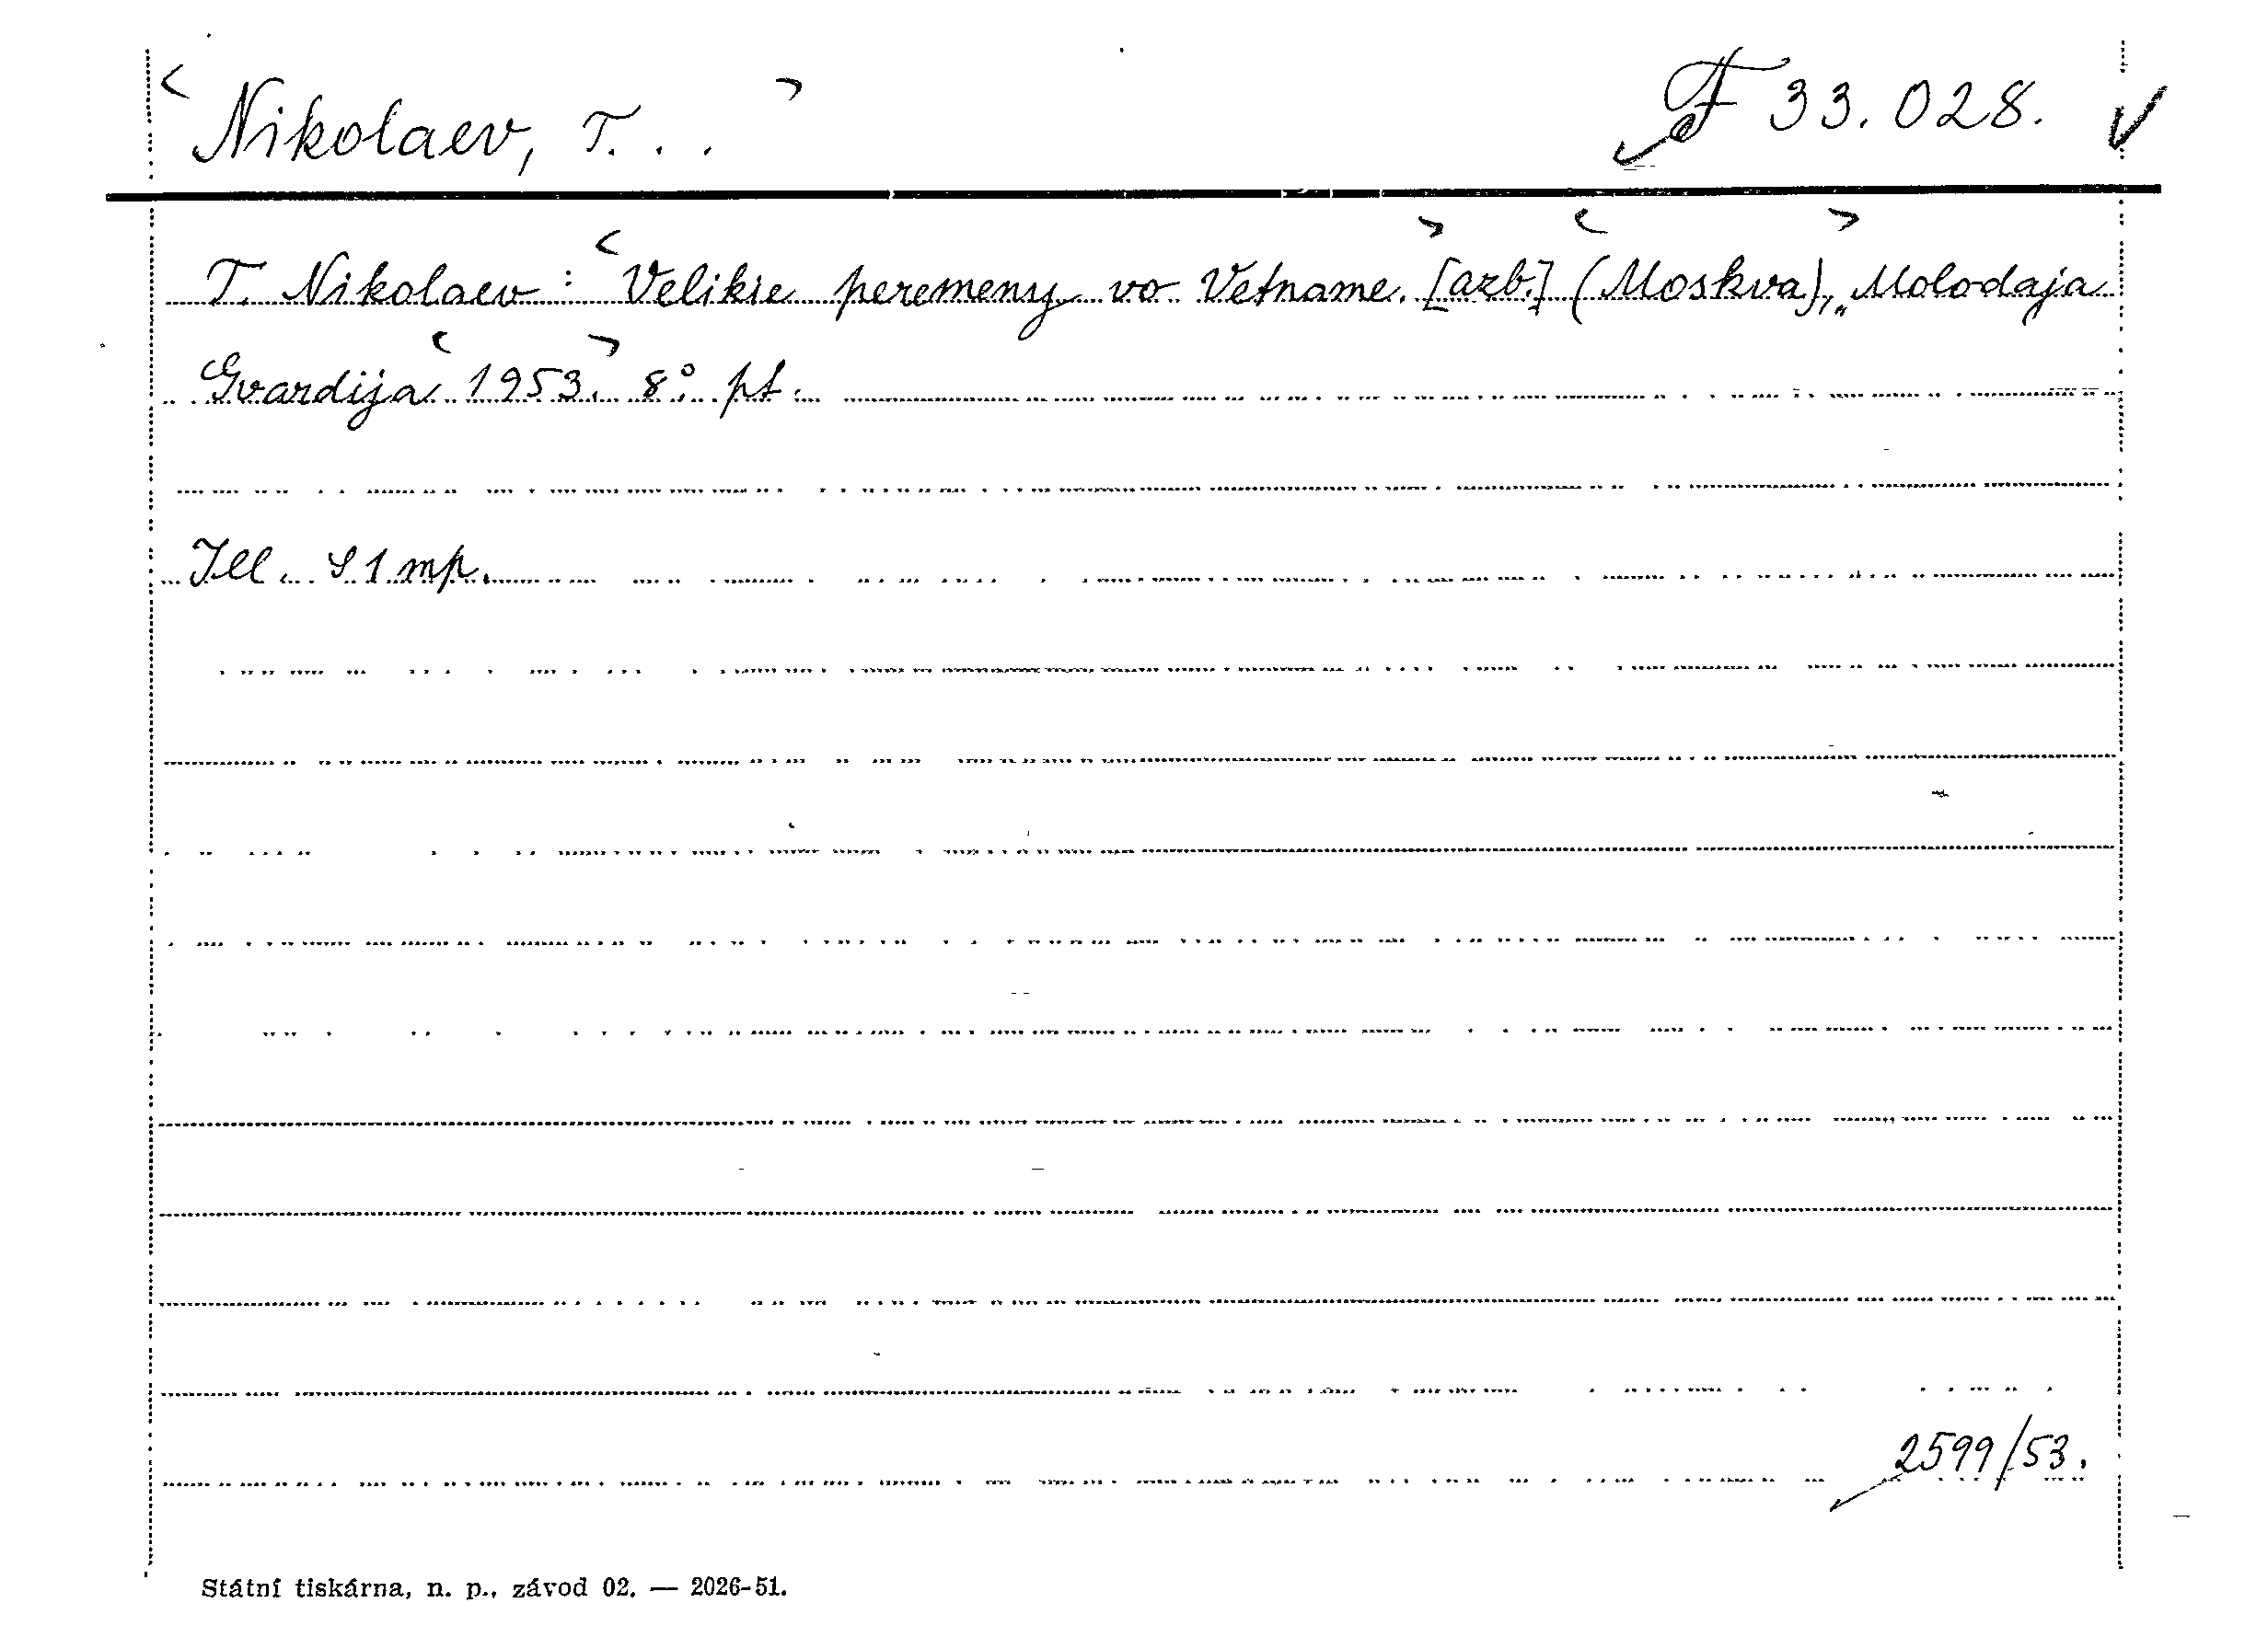 Nikolaev, T. . .
F 33.028.
T. Nikolaev: Velikie peremeny vo Vetname. [azb.] (Moskva), „Molodaja
Gvardija" 1953. 8° pt.
Ill. 1 mp.
2599/53.
Státní tiskárna, n. p., závod 02. — 2026-51.